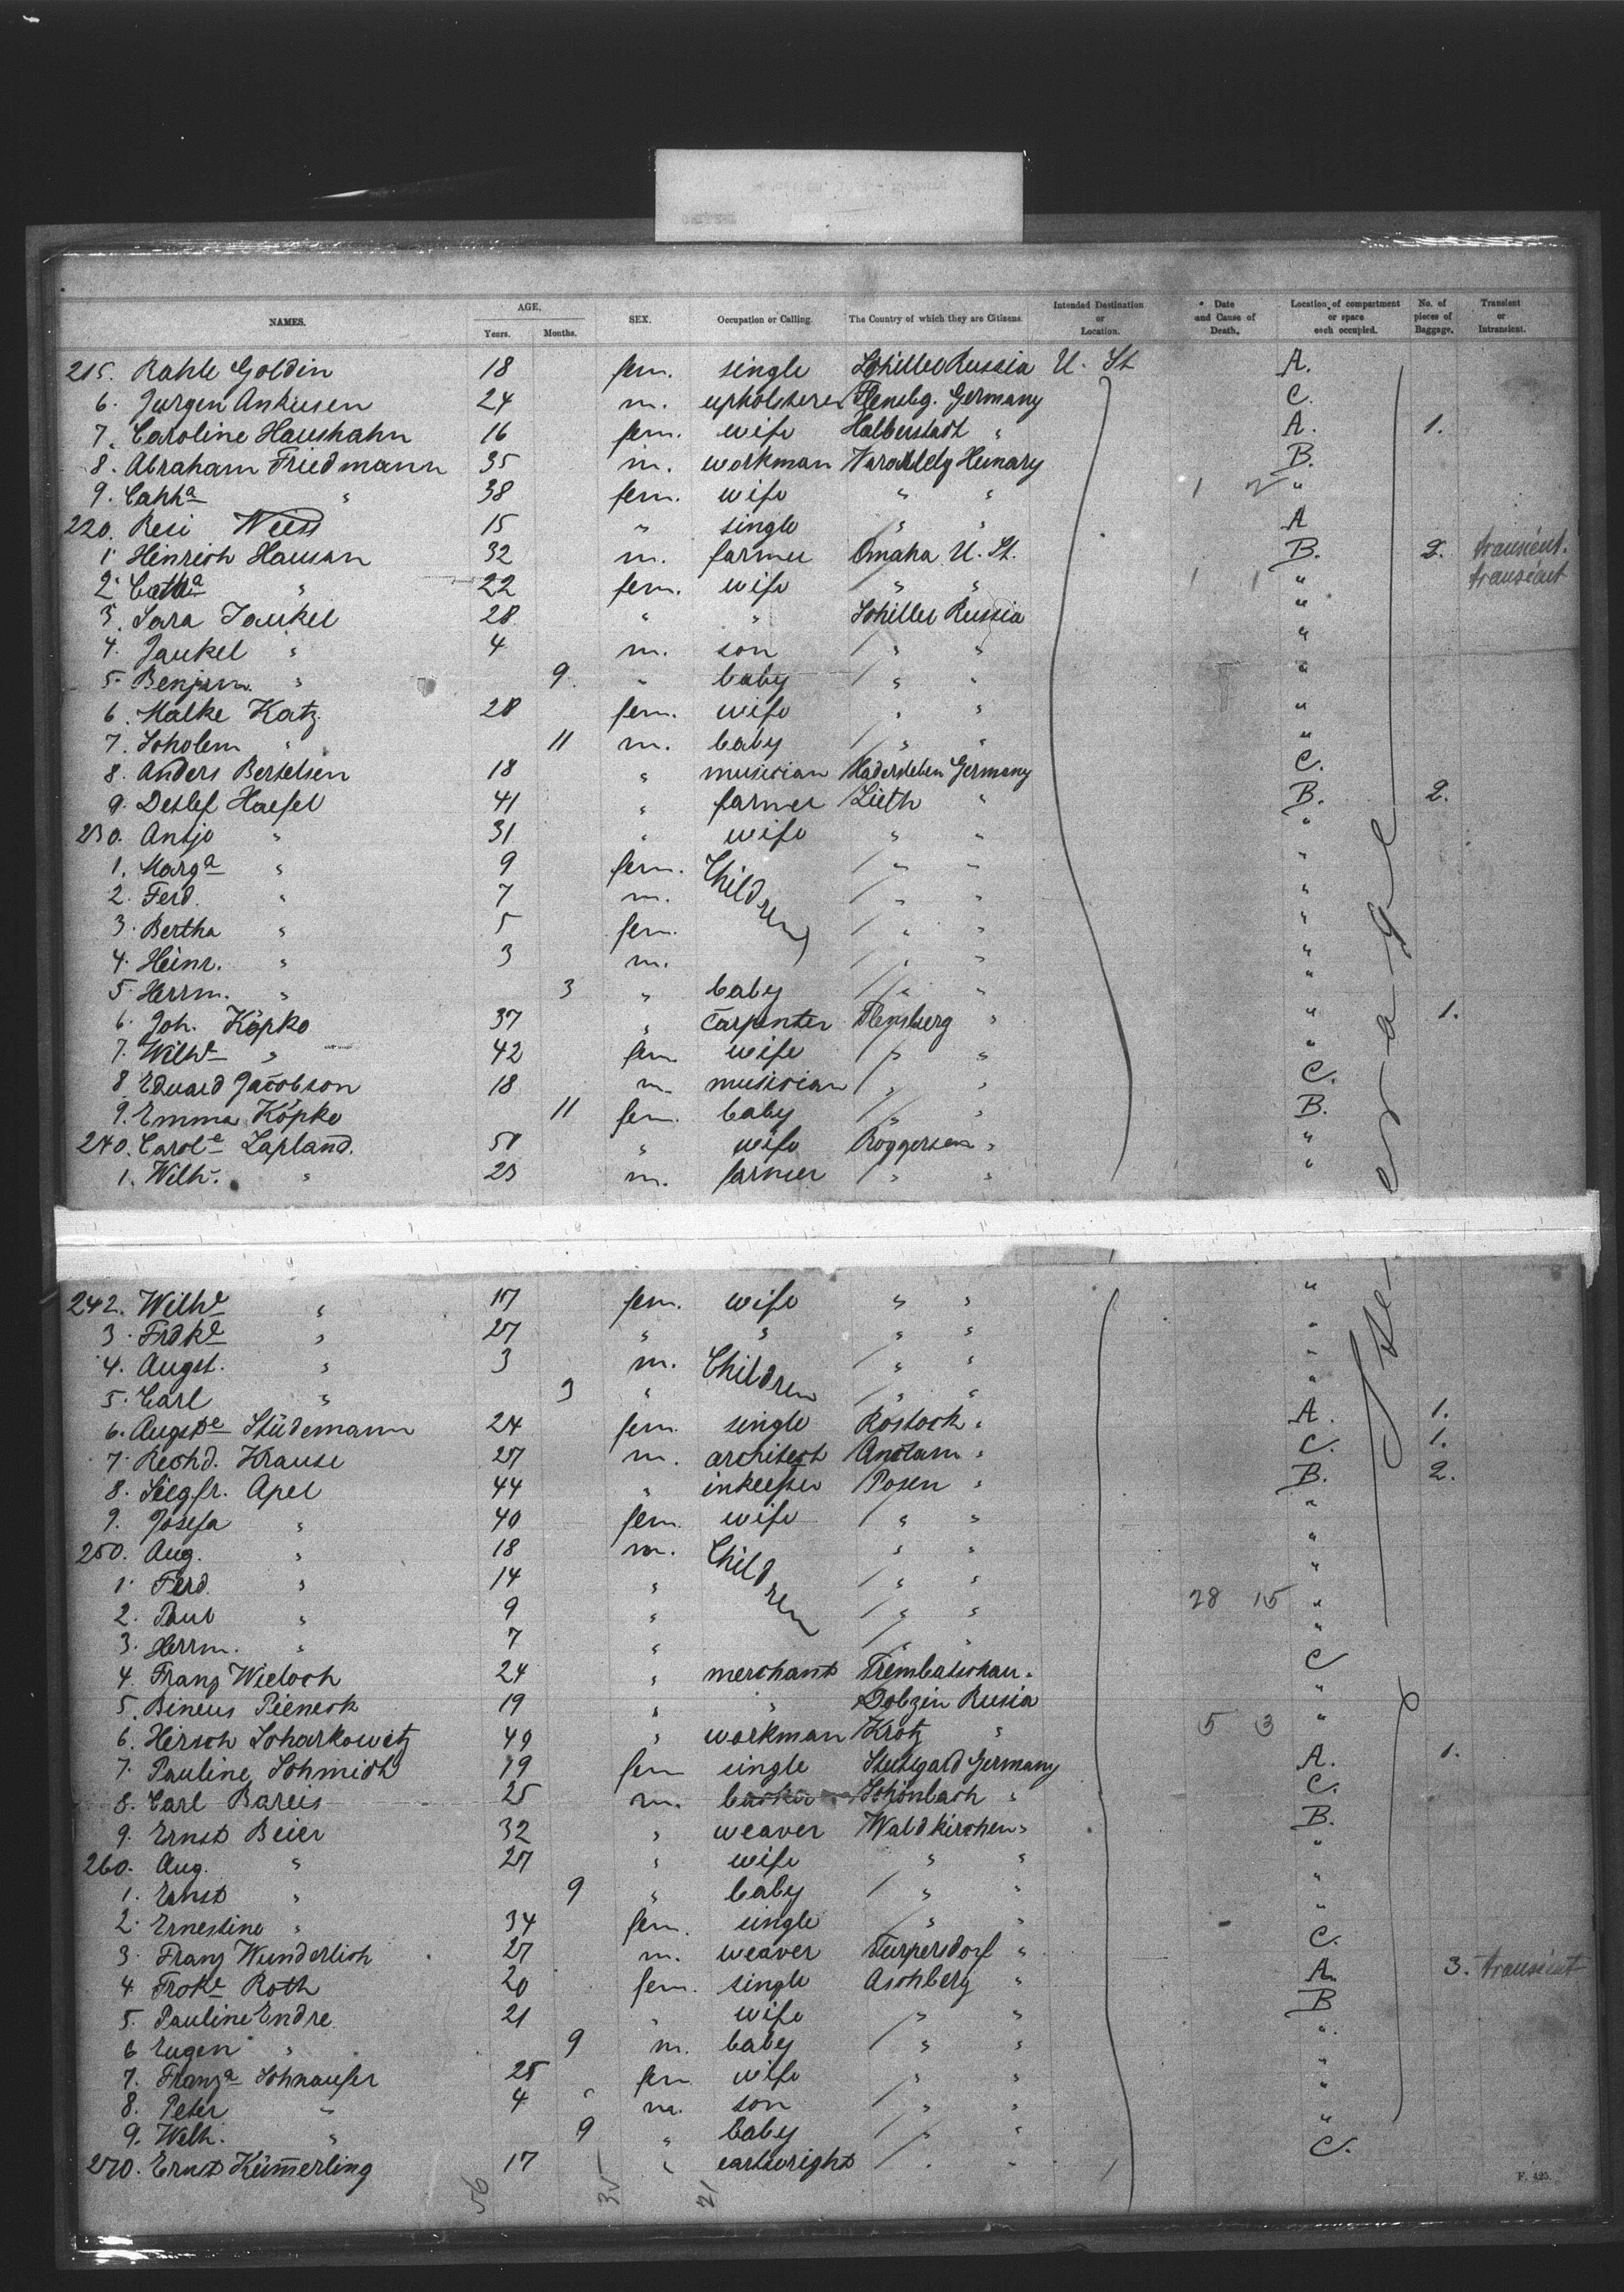 NAMES. AGE. Years. Months. SEX. Occupation or Calling. The Country of which they are Citizens. Intended Destination or Location. Date and Cause of Death. Location of compartment or space each occupied. No. of pieces of Baggage. Transient or Intransient.
215. Rahle Goldin 18 fem. single Schiller Russia U. St. A.
6. Jurgen Ankusen 24 m. upholsterer Flensbg. Germany C.
7. Caroline Haushahn 16 fem. wife Halberstadt " A. 1.
8. Abraham Friedmann 35 m. workman B.
9. " 38 fem. wife " " 1 2 "
220. Resi Weiss 15 " single " " A
1. Hinrich Hansan 32 m. farmer Omaha U. St. B. 2. transient.
2. Catha " 22 fem. wife " " 1 1 " transient
3. Sara Jankel 28 " " Schiller Russia "
4. Jankel " 4 m. son " " "
5. Benjam. " 9 " baby " " "
6. Malke Katz 28 fem. wife " " "
7. Scholem " 11 m. baby " " "
8. Anders Bertelsen 18 " musician Hadersleben Germany C.
9. Detlef Haefel 41 " farmer Lieth " B. 2.
230. Antje " 31 " wife " " "
1. Marga " 9 fem. Children " " "
2. Ferd. " 7 m. " " "
3. Bertha " 5 fem. " " "
4. Heinr. " 3 m. " " "
5. Herrm. " 3 " baby " " "
6. Joh. Köpko 37 " carpenter Flensburg " " 1.
7. Wilhe " 42 fem wife " " "
8. Eduard Jacobson 18 m. musician " " C.
9. Emma Köpko 11 fem. baby " " B.
240. Carole Lapland. 58 " wife Roggersen " "
1. Wilh. " 23 m. farmer " " "
242. Wilhe " 17 fem. wife " " "
3. Frdke " 27 " " " " "
4. Augst. " 3 m. Children " " "
5. Carl " 3 " " " "
6. Augste Stüdemann 24 fem. single Rostock " A. 1.
7. Rechd. Krause 27 m. architect Anclam " C. 1.
8. Siegfr. Apel 44 " inkeeper Posen " B. 2.
9. Josefa " 40 fem. wife " " "
250. Aug. " 18 m. Children " " "
1. Ferd. " 14 " " " "
2. Paul " 9 " " " 28 15 "
3. Herrm. " 7 " " " "
4. Franz Wieloch 24 " merchant Trembatschau " C
5. Bineus Pieneck 19 " " Dobzin Rusia "
6. Hirsch Scharkowitz 49 " workman Krotz " 5 3 "
7. Pauline Schmidt 19 fem single Stuttgard Germany A. 1.
8. Carl Bareis 25 m. Schönbach " C.
9. Ernst Beier 32 " weaver Waldkirchen " B.
260. Aug. " 27 " wife " " "
1. Ernst " 9 " baby " " "
2. Ernestine " 34 fem. single " " "
3. Franz Wunderlich 27 m. weaver Turpersdorf " C.
4. Frdke Roth 20 fem. single Aschberg " A. 3. transient
5. Pauline Endre 21 " wife " " B
6. Eugen " 9 m. baby " " "
7. Franza Schnaufer 25 fem wife " " "
8. Peter " 4 m. son " " "
9. Wilh. " 9 " baby " " "
270. Ernst Kümerling 17 " cartwright " " C.
Steerage
56 35 21
F. 425.